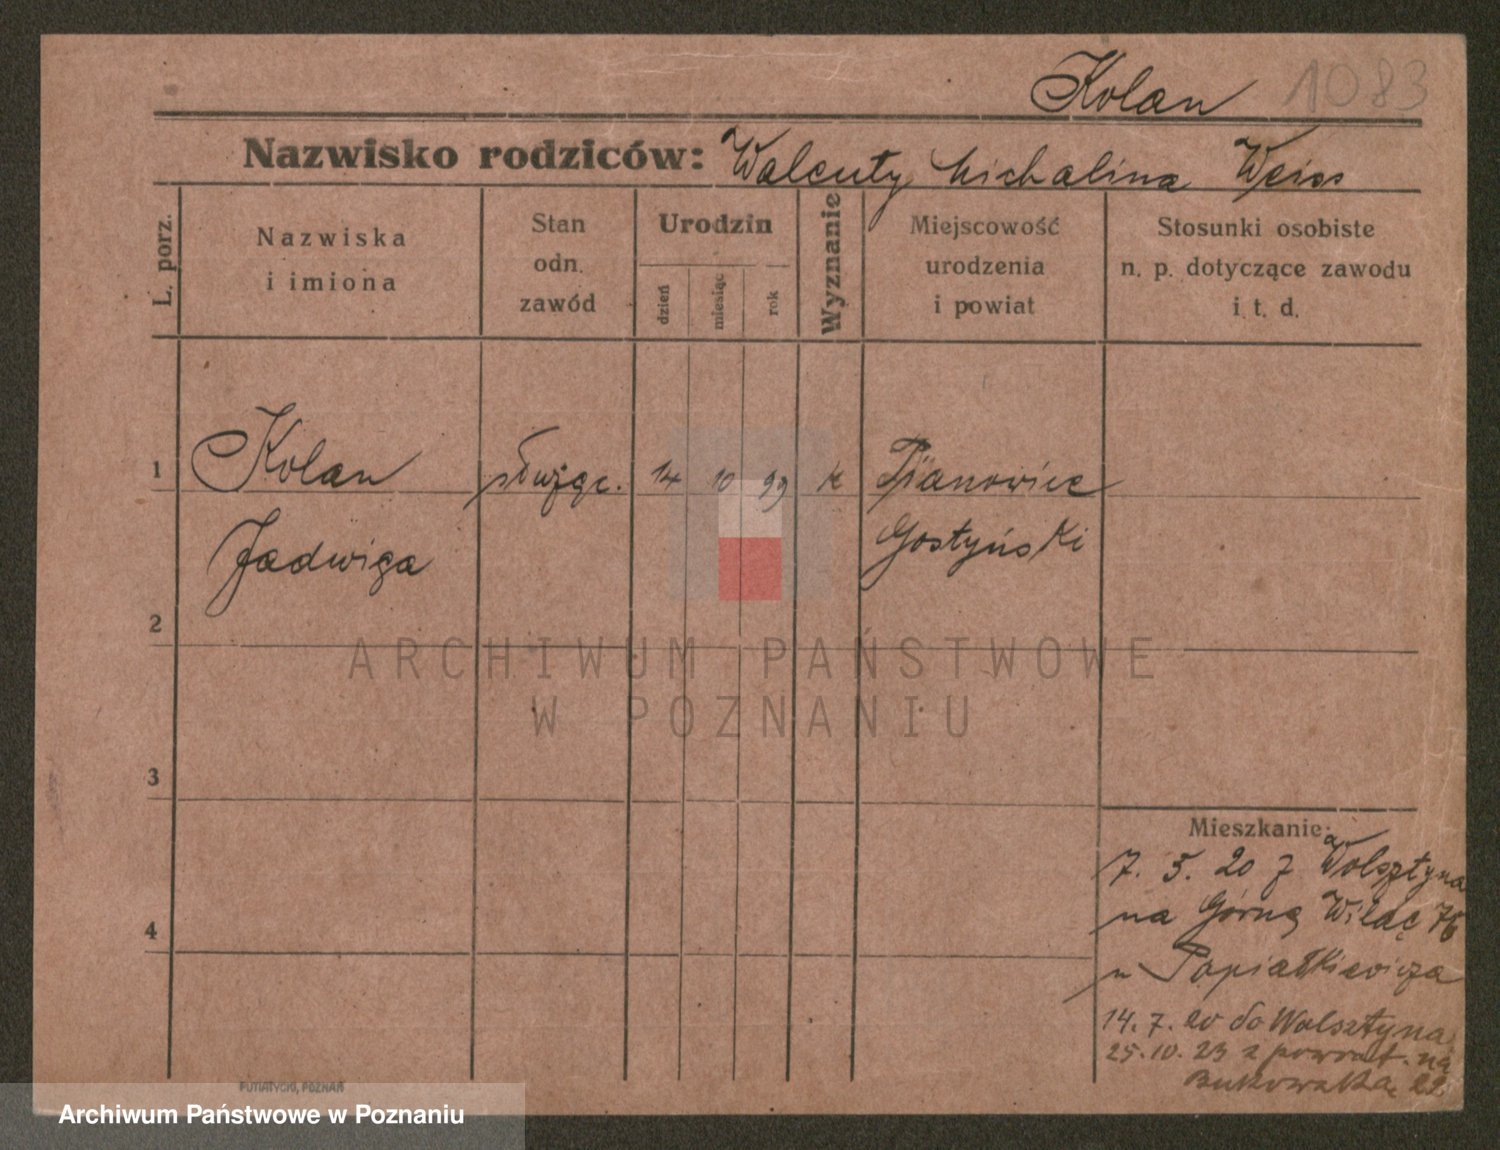 Kolan 1083
Nazwisko rodziców: Walenty Michalina Weiss
L. porz.
Nazwiska
i imiona
Stan
odn.
zawód
Urodzin
dzień
miesiąc
rok
Wyznanie
Miejscowość
urodzenia
i powiat
Stosunki osobiste
n. p. dotyczące zawodu
i t. d.
1 Kolan służąc. 14 10 99 k Pijanowice
Jadwiga Gostyński
2
3
4
ARCHIWUM PAŃSTWOWE
W POZNANIU
Mieszkanie:
7. 5. 20 z Wolsztyna
na Górną Wildę 76
u Papiałkiewicza
14. 7. 20 do Wolsztyna
25. 10. 23 z powrot. na
Bukowską 22
PUTIATYCKI, POZNAŃ
Archiwum Państwowe w Poznaniu